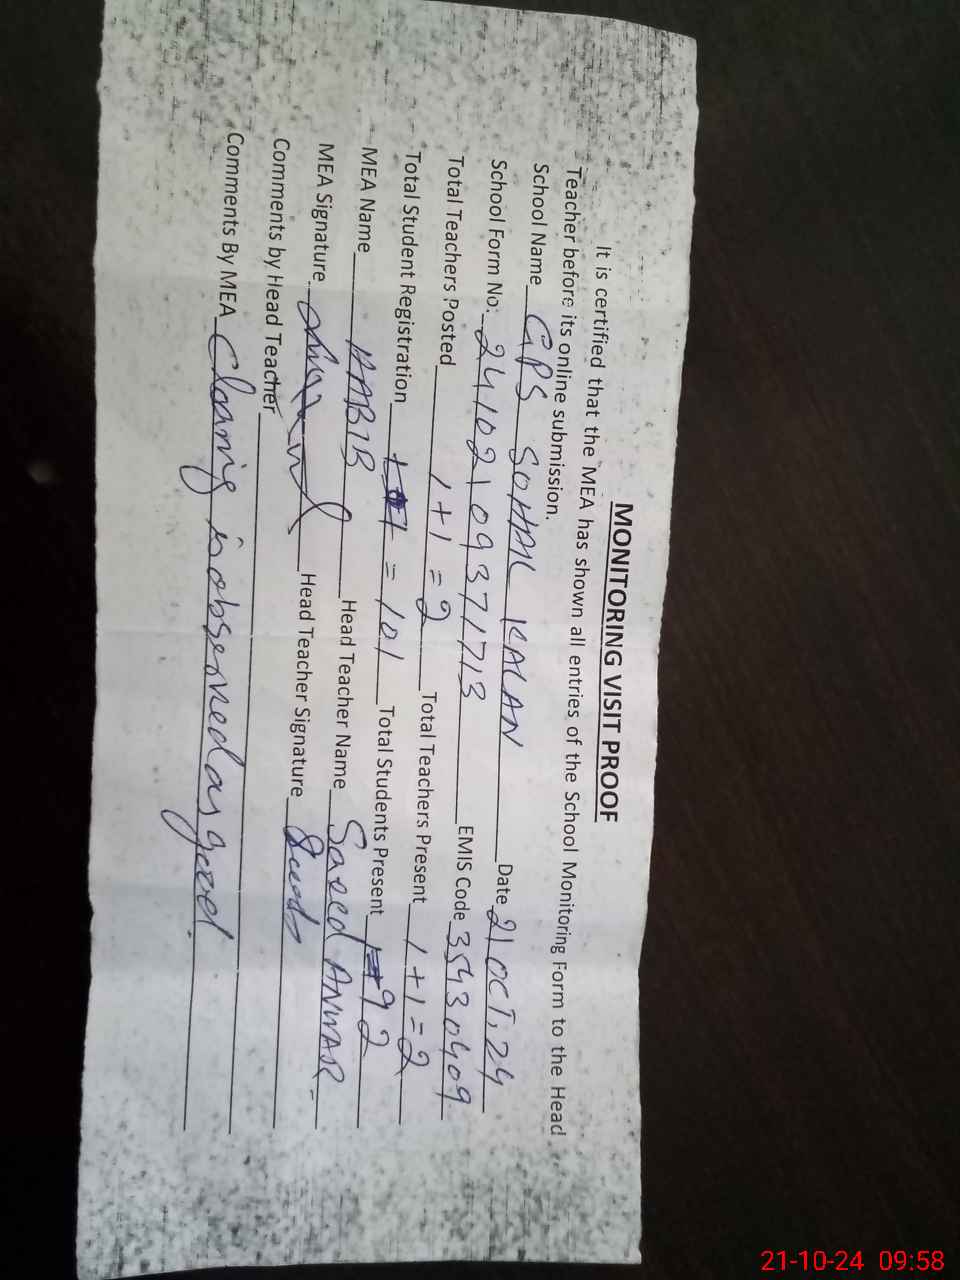 MONITORING VISIT PROOF
It is certified that the MEA has shown all entries of the School Monitoring Form to the Head
Teacher before its online submission.
School Name GPS SOHAL KALAN Date 21 OCT, 24
School Form No: 24102109371713 EMIS Code 35430409
Total Teachers Posted 1+1=2 Total Teachers Present 1+1=2
Total Student Registration = 101 Total Students Present 92
MEA Name HABIB Head Teacher Name Saeed ANWAR
MEA Signature Head Teacher Signature
Comments by Head Teacher
Comments By MEA is observed as good.
21-10-24 09:58